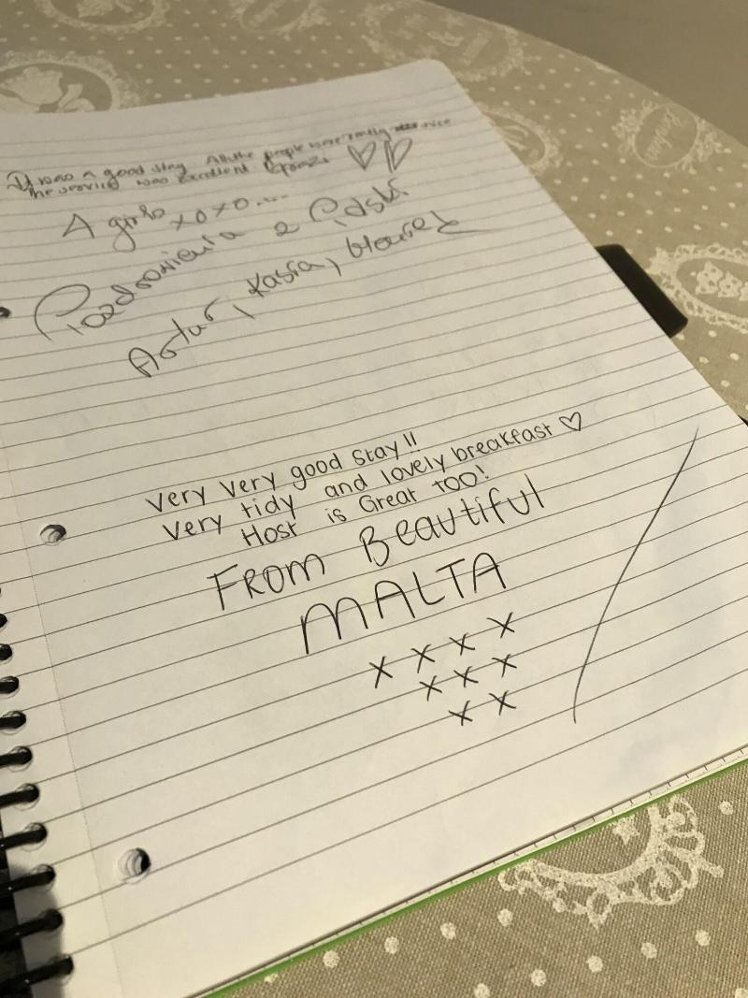 It was a good stay All the people were really nice
the service was Excellent Grazi
A girls xoxo....
Pozdrowienia z Polski
Artur, Kasia,
Very Very good Stay!!
Very tidy and lovely breakfast ♡
Host is Great too!
From Beautiful
MALTA
x x x x
x x x
x x